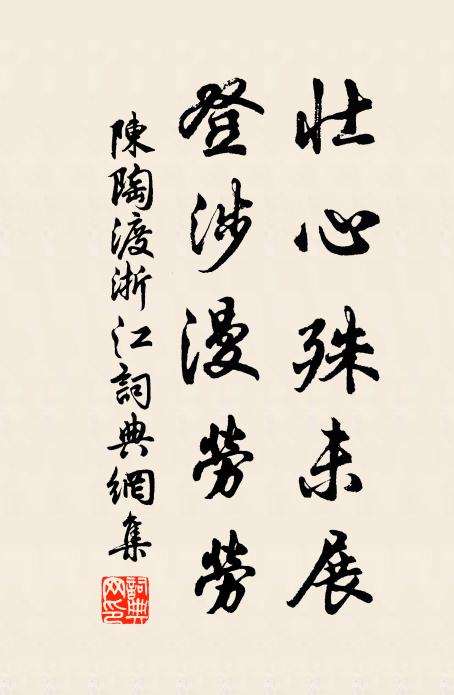 壯心殊未展
登涉漫勞勞
陳陶渡浙江詞典網集
詞典
网印